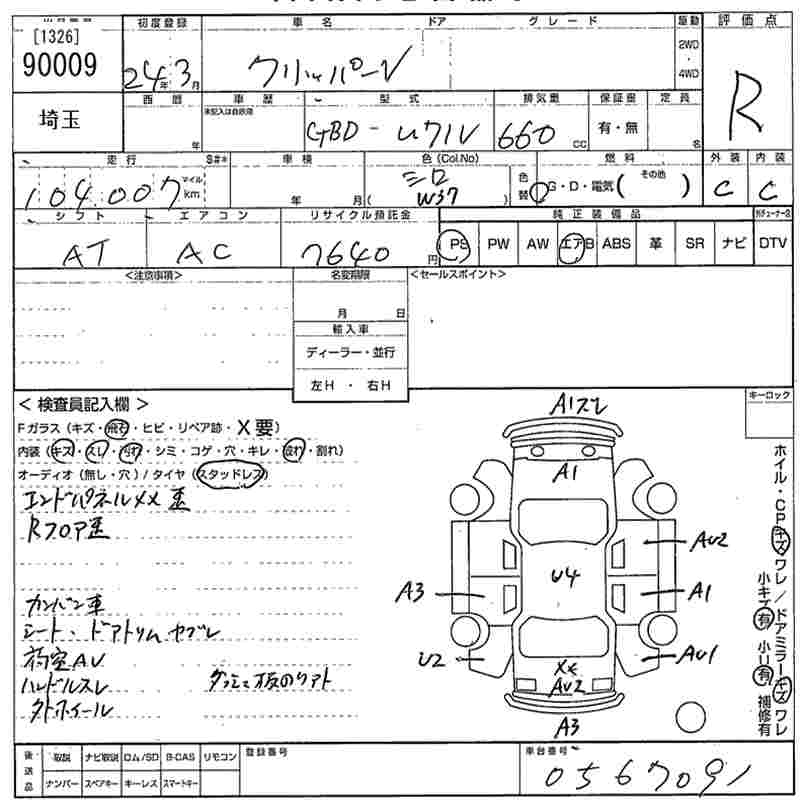 出品番号 [1326] 90009
初度登録 24年3月
車名 クリッパーV
ドア
グレード
駆動 2WD・4WD
評価点 R
埼玉
西暦 年
車歴 未記入は自家用
型式 GBD-U71V
排気量 660 CC
保証書 有・無
定員 名
走行 104,007 マイル km
S#*
車検 年 月
色(Col.No) シロ ( W37 )
色替
燃料 G・D・電気( その他 )
外装 C
内装 C
シフト AT
エアコン AC
リサイクル預託金 7640円
純正装備品
PS PW AW エアB ABS 革 SR ナビ
DTV
<注意事項>
名変期限 月 日
<セールスポイント>
輸入車
ディーラー・並行
左H・右H
<検査員記入欄>
Fガラス(キズ・飛石・ヒビ・リペア跡・X要)
内装(キズ・スレ・汚れ・シミ・コゲ・穴・キレ・破れ・割れ)
オーディオ(無し・穴)/タイヤ(スタッドレス)
エンドパネルXX歪
Rフロア歪
カンバン車
シート・ドアトリムヤブレ
荷室AU
ハンドルスレ
タトホイール
A1スレ
A1
AU2
U4
A3
A1
U2
AU1
XX
AU2
A3
キーロック
ホイル・CPキズワレ/ドアミラーキズワレ
小キズ有 小U有 補修有
後送品
取説 ナビ取説 ロム/SD B-CAS リモコン
ナンバー スペアキー キーレス スマートキー
登録番号
車台番号 0567091